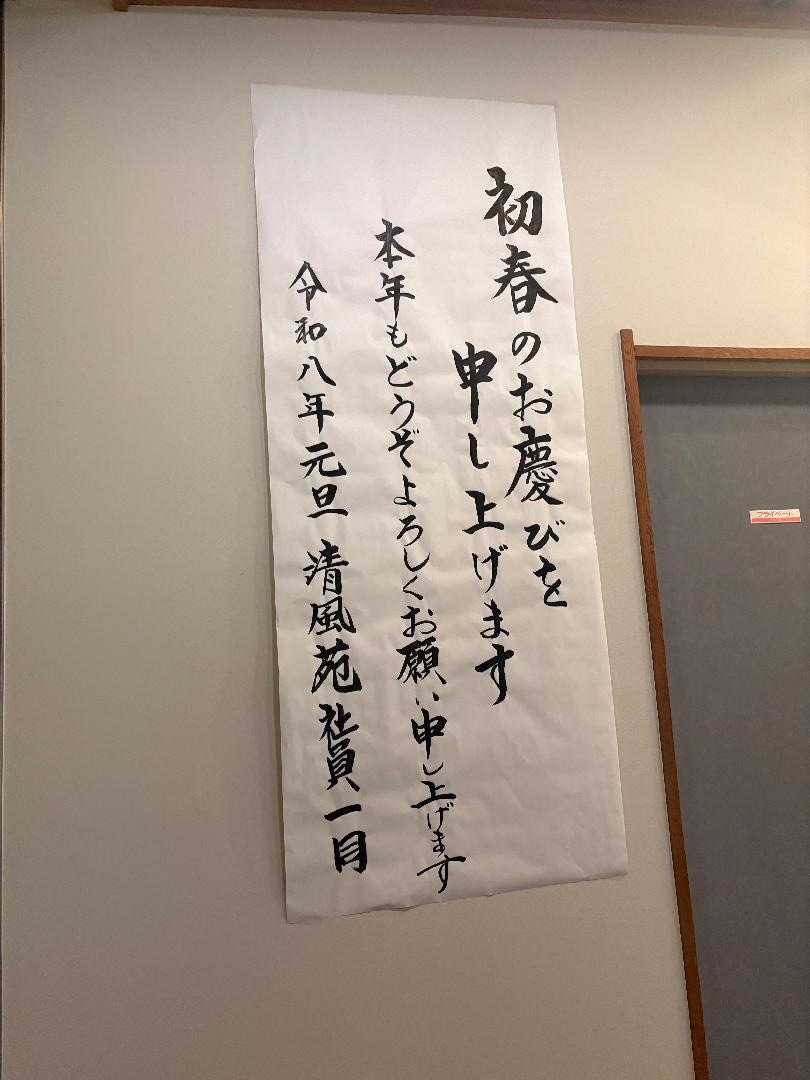 初春のお慶びを
申し上げます
本年もどうぞよろしくお願い申し上げます
令和八年元旦 清風苑社員一同
プライベート